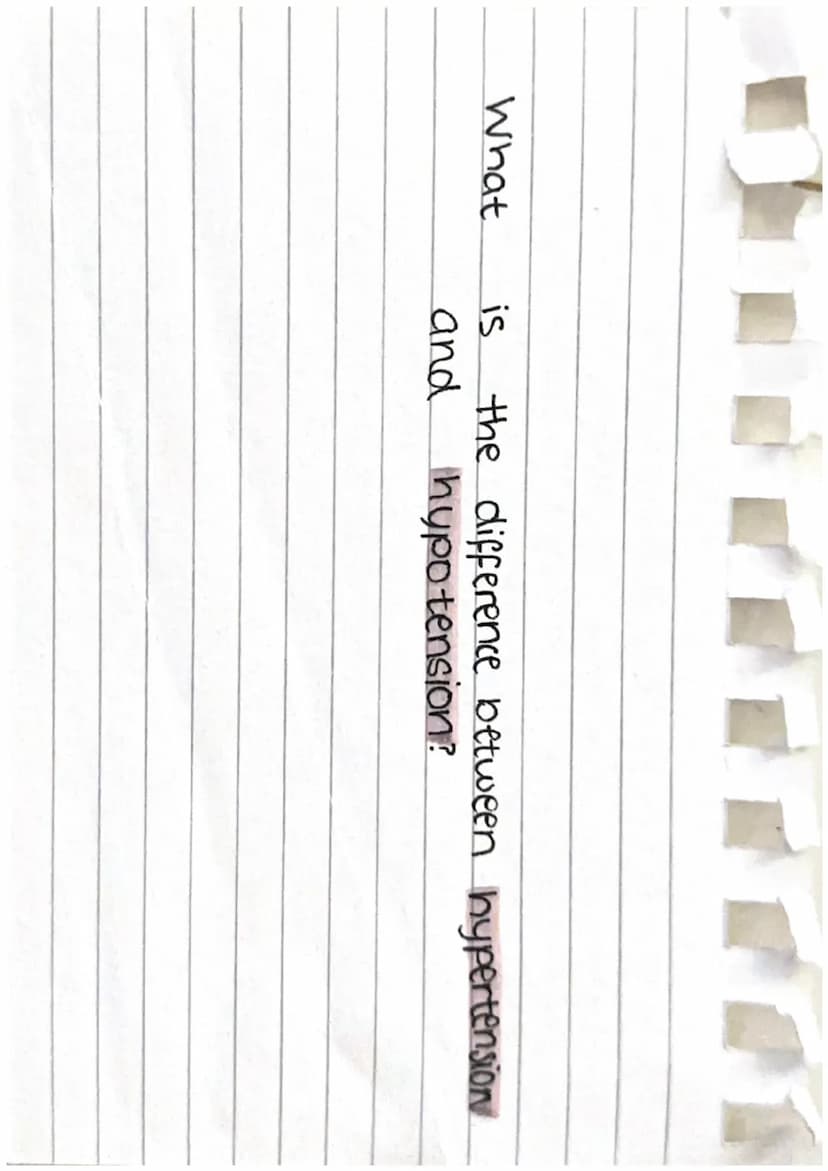 What is the difference between hypertension
and hypotension?